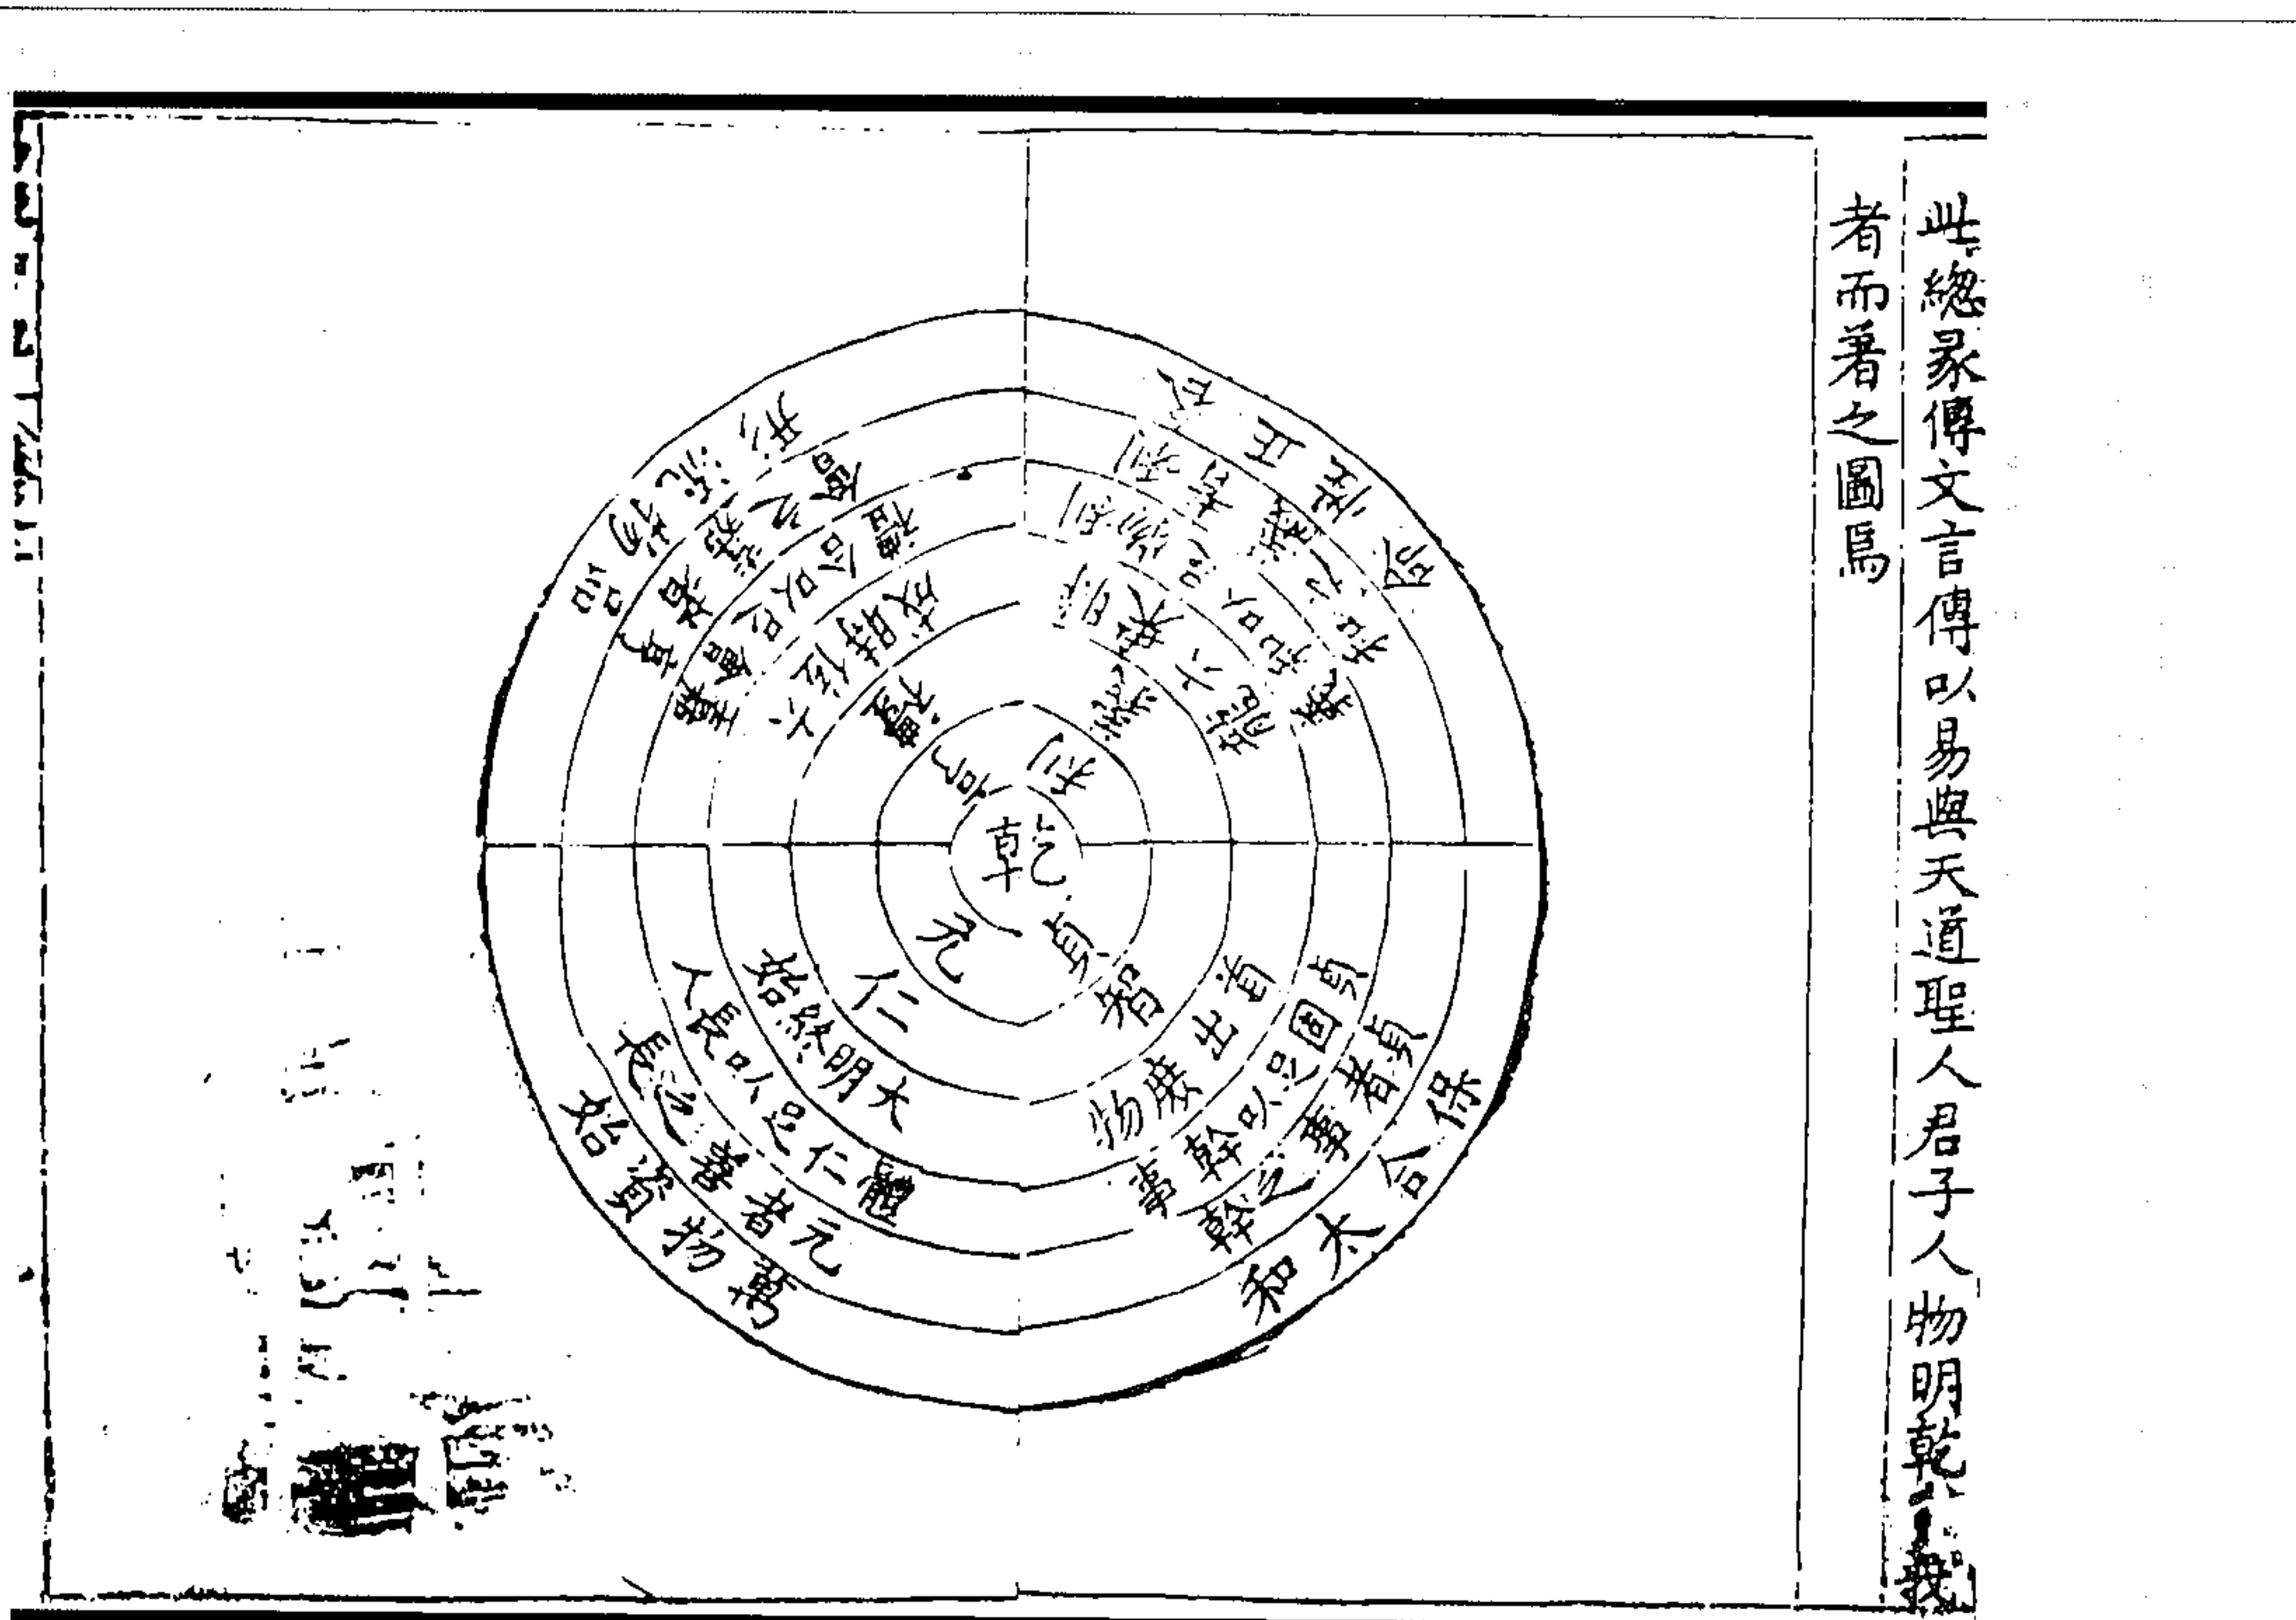 此總彖傳文言傳以易與天道聖人君子人物明乾
者而著之圖焉
乾
元
亨
利
貞
仁
禮
義
智
大明終始
六位時成
時乘六龍
首出庶物
體仁足以長人
嘉會足以合禮
利物足以和義
貞固足以幹事
元者善之長
亨者嘉之會
利者義之和
貞者事之幹
萬物資始
品物流形
各正性命
保合太和